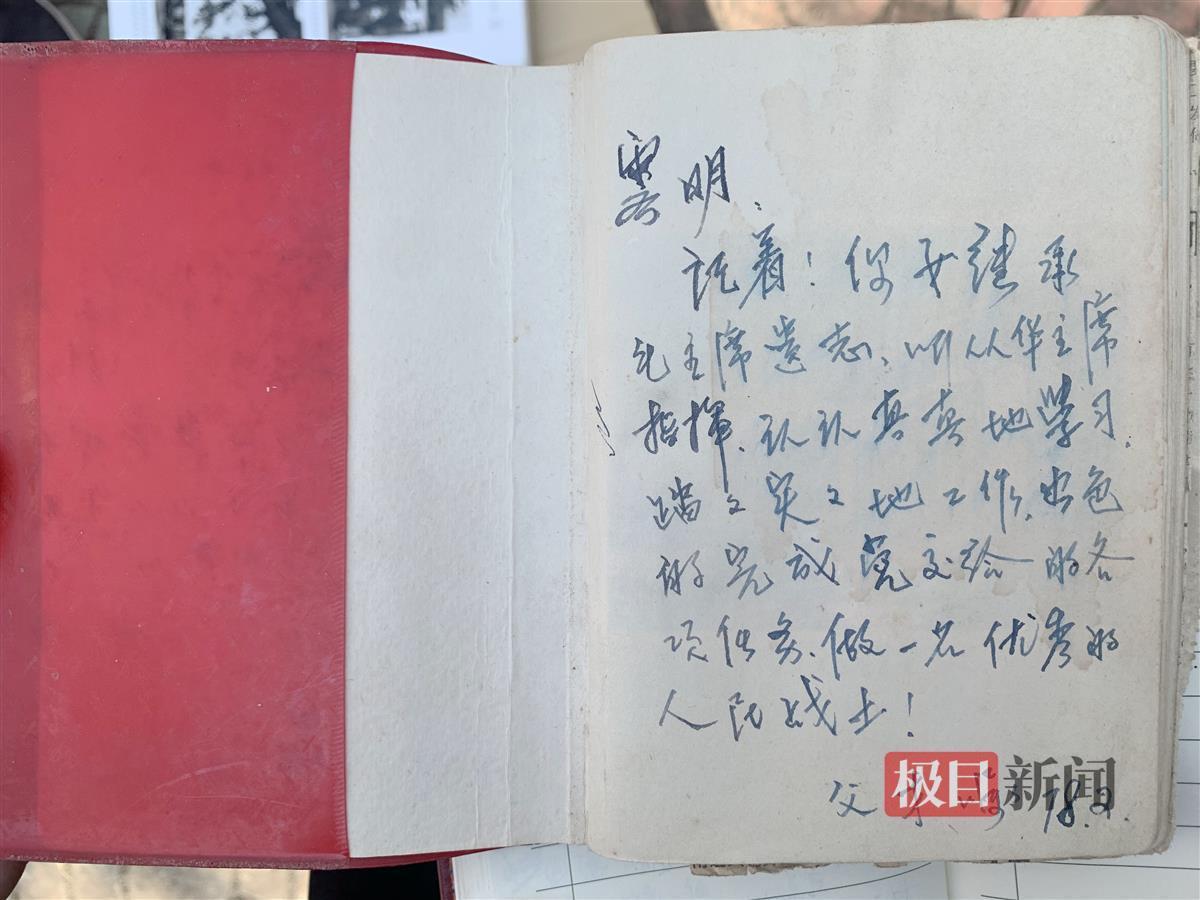 明:
记着！你要继承
毛主席遗志、听从华主席
指挥、认认真真地学习、
踏々实々地工作、出色
的完成党交给的各
项任务、做一名优秀的
人民战士！
父 78.2.
极目新闻